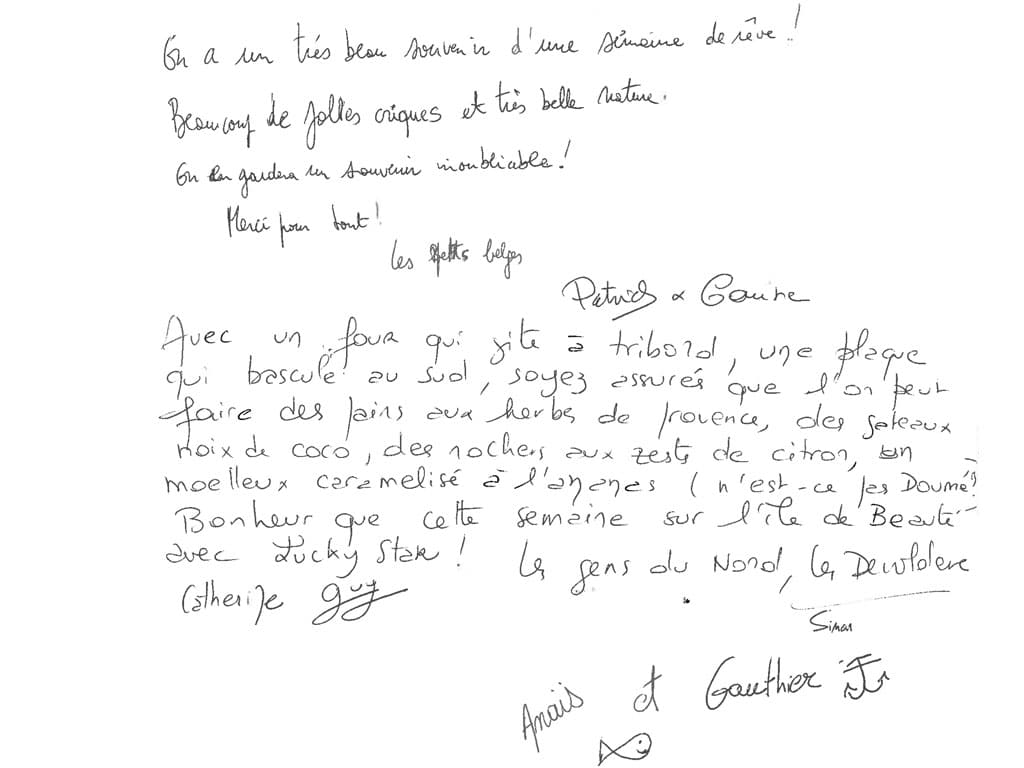 On a un très beau souvenir d'une semaine de rêve!
Beaucoup de jolles criques et très belle nature.
On en gardera un souvenir inoubliable!
Merci pour tout!
Les petits belges
Patrick &
Avec un four qui gite à tribord, une plaque
qui bascule au sud, soyez assurés que l'on peut
faire des pains aux herbes de provence, des gateaux
noix de coco, des rochers aux zests de citron, un
moelleux caramelisé à l'ananas (n'est-ce pas Doumé?
Bonheur que cette semaine sur l'île de Beauté
avec Lucky Star! Les gens du Nord, les
Catherine guy
Simon
Anaïs et Gauthier